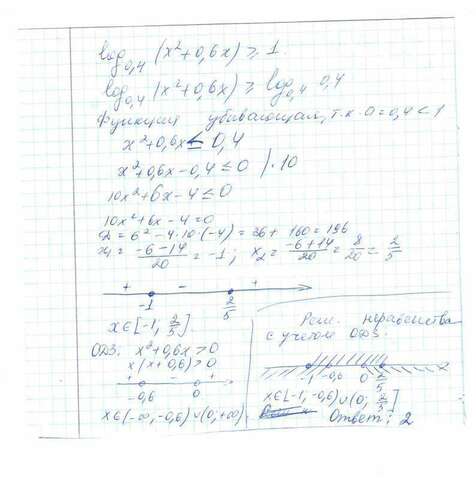 log₀,₄ (x²+0,6x) ≥ 1
log₀,₄ (x²+0,6x) ≥ log₀,₄ 0,4
Функция убивающая, т.к 0=0,4<1
x²+0,6x ≤ 0,4
x²+0,6x-0,4≤0 )·10
10x²+6x-4≤0
10x²+6x-4=0
D=6²-4·10·(-4)=36+160=196
x₁= (-6-14)/20 = -1; x₂= (-6+14)/20 = 8/20 = 2/5
+ - +
-1 2/5
x∈[-1, 2/5]
ОДЗ. x²+0,6x>0
x(x+0,6)>0
+ - +
-0,6 0
x∈(-∞,-0,6)∪(0,+∞).
Реш. неравенства
с учетом ОДЗ.
-1 -0,6 0 2/5 x
x∈[-1,-0,6)∪(0; 2/5]
Ответ: 2